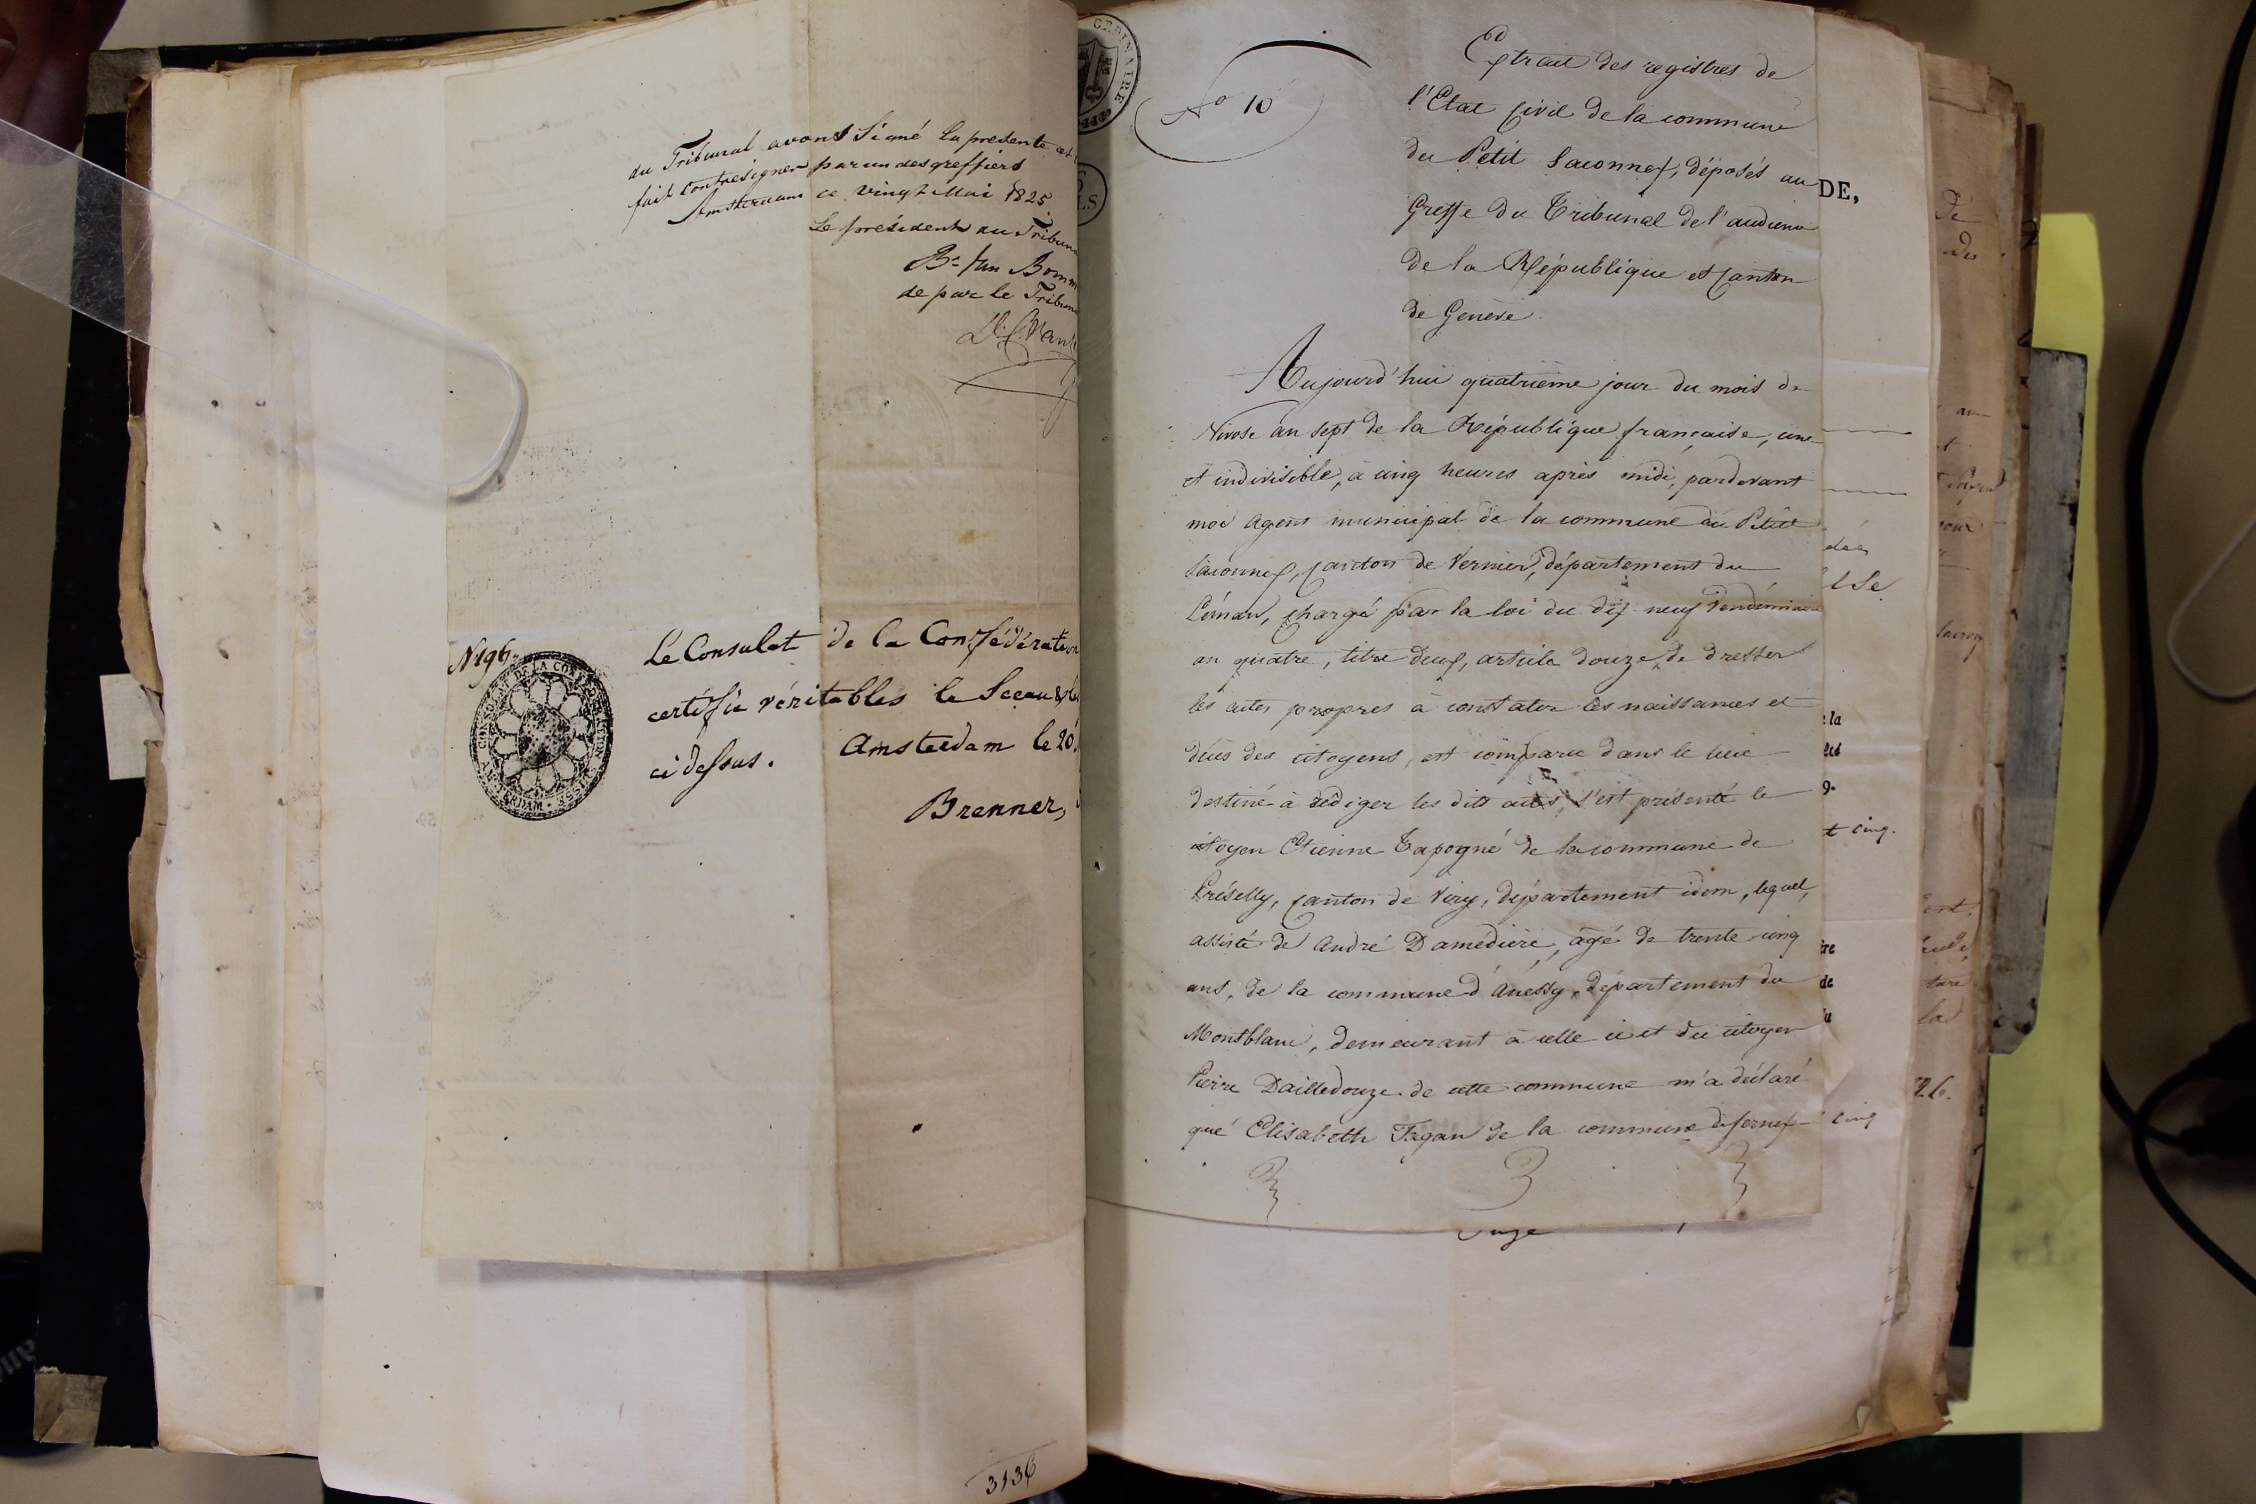 du Tribunal avons Signé la presente et
fait Contresigner par un des greffiers
Amsterdam ce vingt Mai 1825
Le président du Tribun
de par le Tribun
N 196
CONSULAT DE LA CONFEDERATION SUISSE A AMSTERDAM
Le Consulat de la Confédération
certifie véritables le Sceau & les
ci dessus. Amsterdam le 20
Brenner,
3136
No 10
Extrait des registres de
l'Etat Civil de la commune
du Petit Saconnex, déposés au
Greffe du Tribunal de l'audience
de la République et Canton
de Genève.
Aujourd'hui quatrième jour du mois de
Nivose an sept de la République française, une
et indivisible, à cinq heures après midi, pardevant
moi agent municipal de la commune du Petit
Saconnex, canton de Vernier, département du
Léman, chargé par la loi du dix neuf Vendémiaire
an quatre, titre deux, article douze, de dresser
les actes propres à constater les naissances et
décès des citoyens, est comparu dans le lieu
destiné à rédiger les dits actes, s'est présenté le
citoyen Etienne Tapogné de la commune de
Présilly, canton de Viry, département idem, lequel,
assisté de André Damédière, âgé de trente cinq
ans, de la commune d'Anessy, département du
Montblanc, demeurant à celle ci et du citoyen
Pierre Dailledouze de cette commune m'a déclaré
que Elisabeth Fagan de la commune de Fernex
DE,